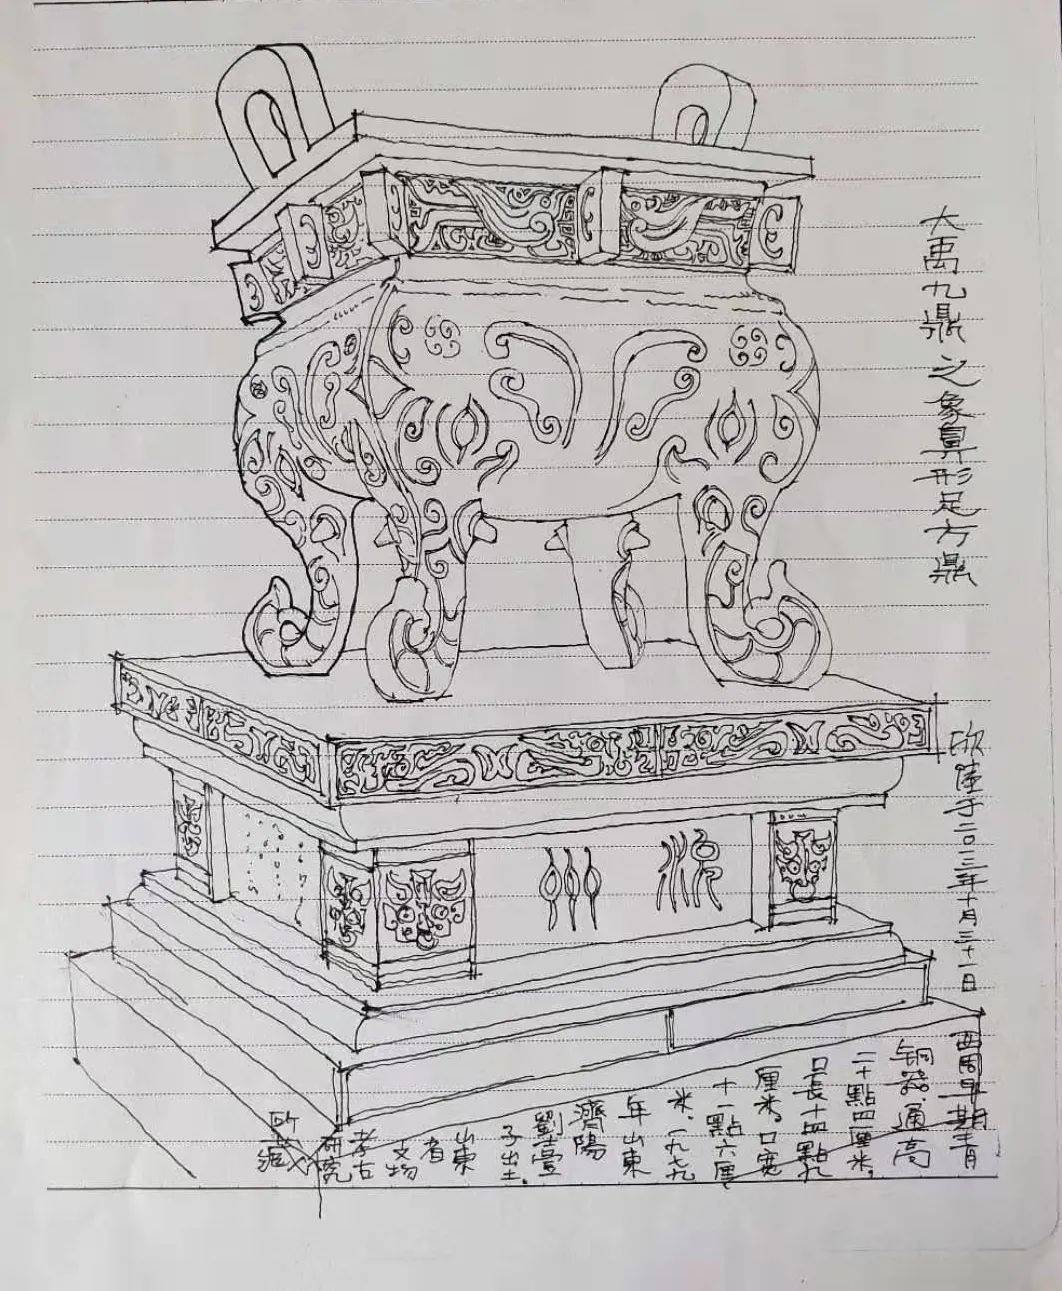 大禹九鼎之象鼻形足方鼎
于二〇二三年十月三十一日
西周早期青
铜器。通高
二十點四厘米。
口長十四點九
厘米。口宽
十一點六厘
米。一九七九
年山東
濟陽
劉臺
子出土。
山東
省
文物
考古
研究
所藏